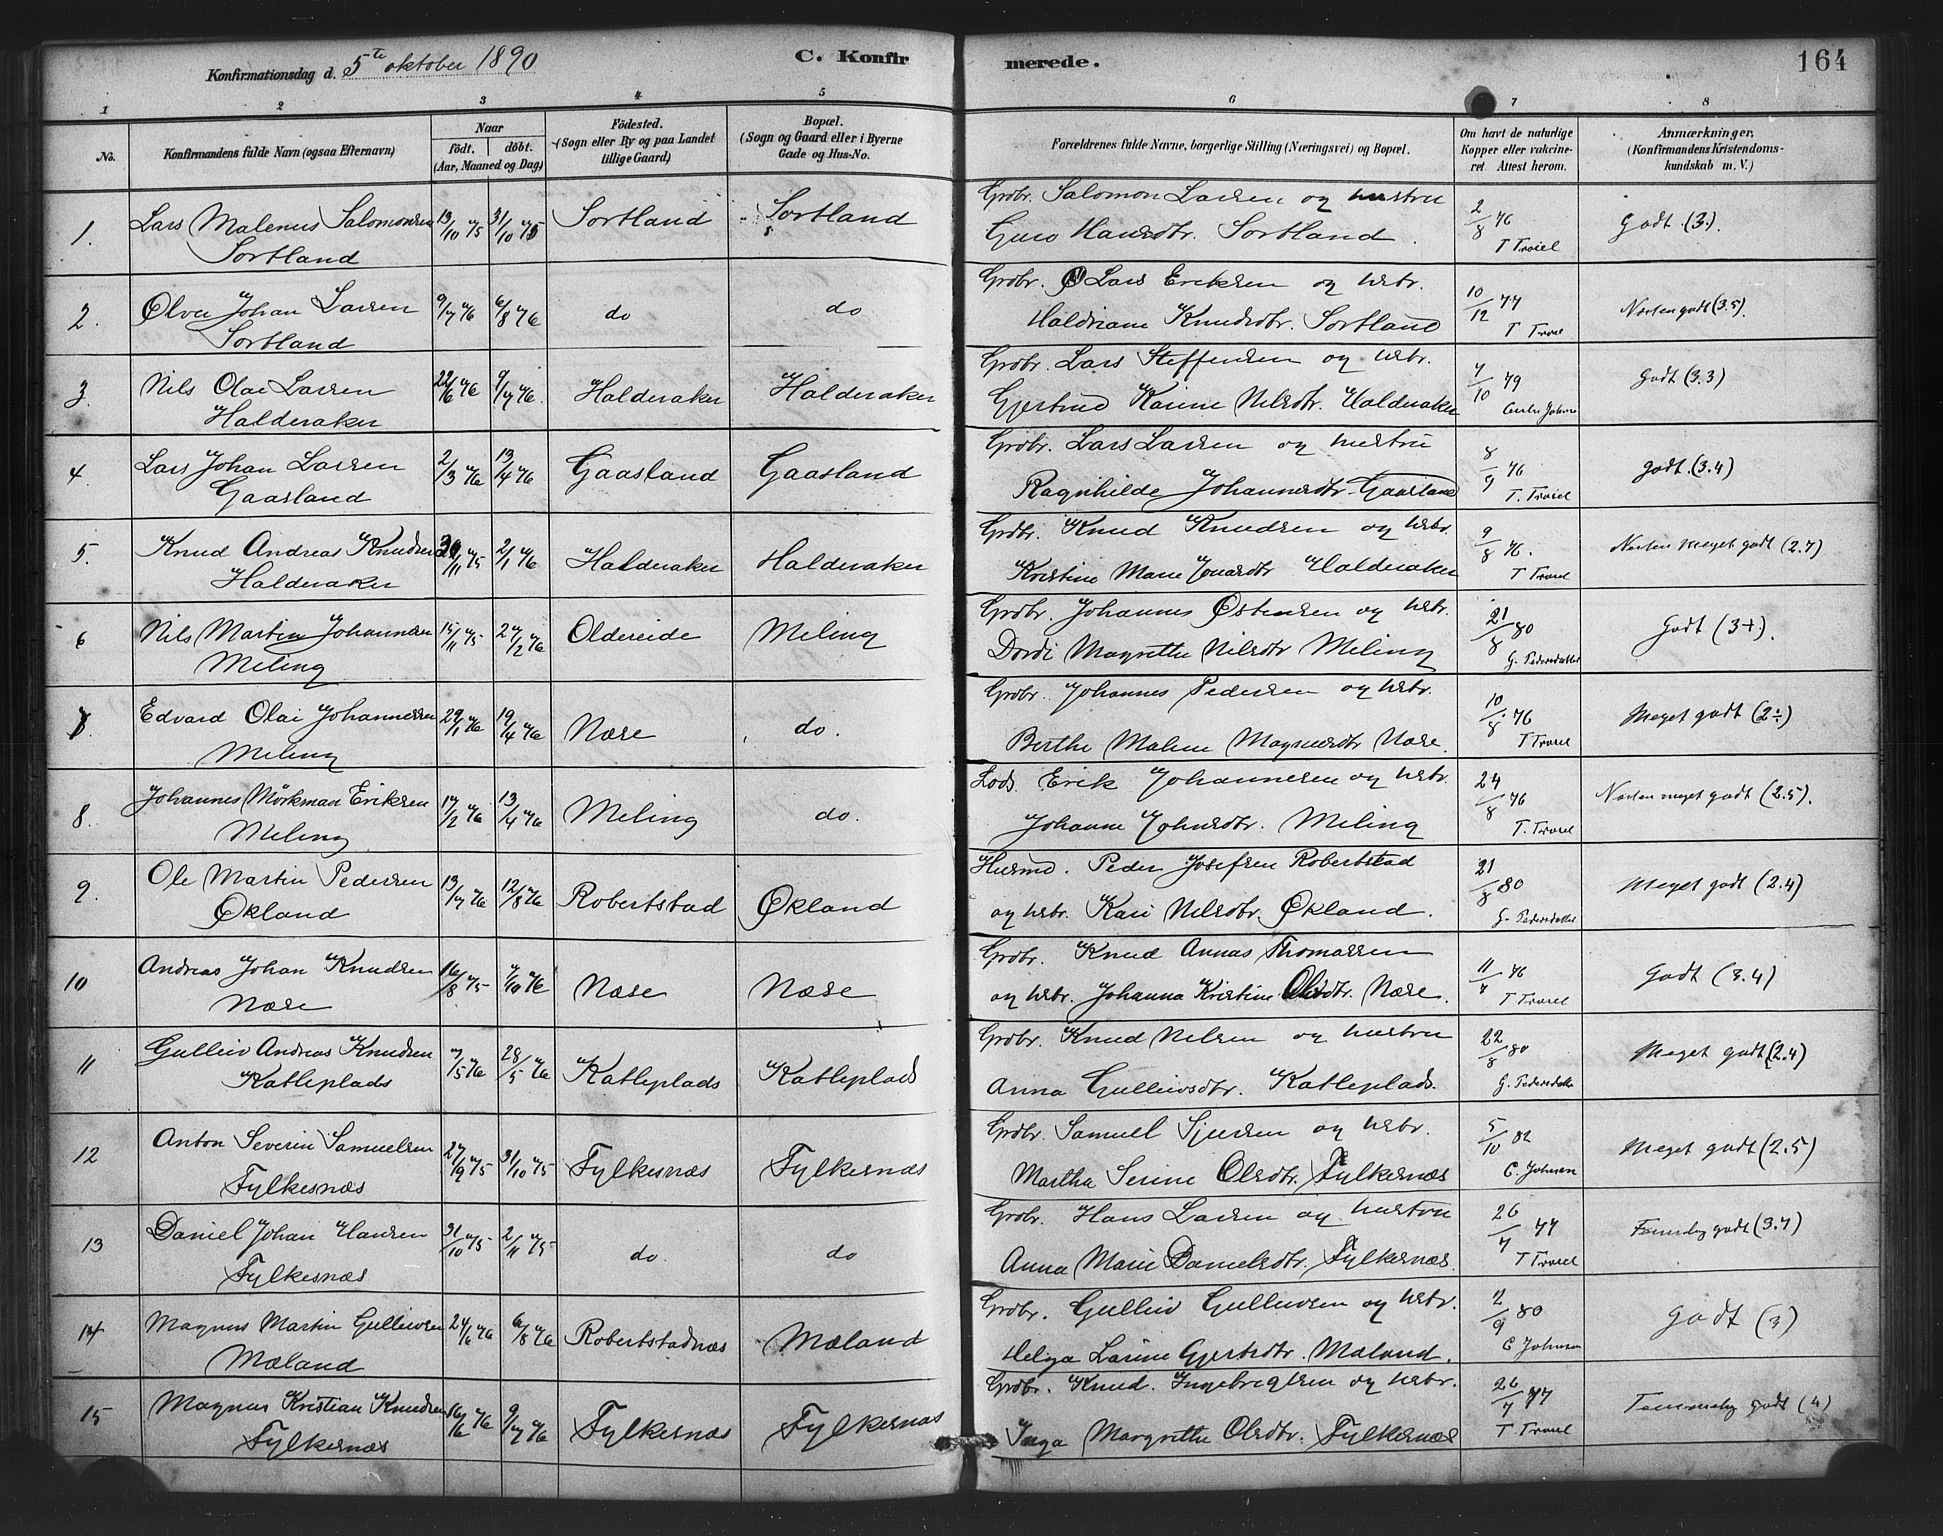 Konfirmationsdag d. 5te oktober 1890
C. Konfirmerede.
164
1 2 3 4 5 6 7 8
No.
Konfirmandens fulde Navn (ogsaa Efternavn)
Naar
født. døbt.
(Aar, Maaned og Dag)
Födested.
(Sogn eller By og paa Landet
tillige Gaard)
Bopæl.
(Sogn og Gaard eller i Byerne
Gade og Hus-No.
Forældrenes fulde Navne, borgerlige Stilling (Næringsvei) og Bopæl.
Om havt de naturlige
Kopper eller vakcine-
ret. Attest herom.
Anmærkninger.
(Konfirmandens Kristendoms-
kundskab m. V.)
1. Lars Malenus Salomonsen 13/10 75 31/10 75 Sortland Sortland Grdbr. Salomon Larsen og hustru 2/8 76 Godt (3).
Sortland Guro Hansdtr. Sortland. T Troiel
2. Olva Johan Larsen 9/7 76 6/8 76 do do Grdbr. Lars Eriksen og hstr. 10/12 77 Næsten godt (3.5).
Sortland Haldriane Knudsdtr. Sortland T Troiel
3. Nils Olai Larsen 22/6 76 9/7 76. Halderaker Halderaker Grdbr. Lars Steffensen og hstr. 7/10 79 Godt (3.3)
Halderaker Gjertrud Karine Nilsdtr. Halderaker
4. Lars Johan Larsen 2/3 76 13/4 76 Gaasland Gaasland Grdbr. Lars Larsen og hustru 8/9 76 godt. (3.4)
Gaasland Ragnhilde Johannesdtr. Gaasland T. Troiel
5. Knud Andreas Knudsen 30/11 75 2/1 76 Halderaker Halderaker Grdbr. Knud Knudsen og hstr. 9/8 76. Næsten meget godt (2.7)
Halderaker Kristine Marie Jonasdtr Halderaker T Troiel
6 Nils Martin Johannesen 15/11 75 27/2 76 Oldereide Meling Grdbr. Johannes Østensen og hstr. 21/8 80 Godt (3+).
Meling Dordi Magrethe Nilsdtr Meling G. Pedersdatter
7. Edvard Olai Johannessen 29/1 76 19/4 76 Næse do. Grdbr. Johannes Pedersen og hstr. 10/8 76 Meget godt (2÷)
Meling Berthe Malene Magnusdtr Næse. T Troiel
8. Johannes Mörkman Eriksen 17/2 76 13/4 76 Meling do. Lods. Erik Johannesen og hstr. 24/8 76 Næsten meget godt (2.5).
Meling Johanne Johnsdtr. Meling T. Troiel
9. Ole Martin Pedersen 13/7 76 12/8 76 Robertstad Økland Husmd. Peder Josefsen Robertstad 21/8 80 Meget godt (2.4)
Økland og hstr. Kari Nilsdtr. Økland. G. Pedersdatter
10 Andreas Johan Knudsen 16/8 75 7/10 76 Næse Næse Grdbr. Knud Annas Thomassen 11/8 76 Godt (3.4)
Næse og hstr. Johanna Kristine Olsdtr. Næse. T Troiel
11 Gulleiv Andreas Knudsen 7/5 76 28/5 76 Katleplads Katleplads Grdbr. Knud Nilsen og hustru 22/8 80 Meget godt (2.4)
Katleplads Anna Gulleivsdtr. Katleplads. G. Pedersdatter
12 Anton Severin Samuelsen 27/9 75 31/10 75 Fylkesnæs Fylkesnæs Grdbr. Samuel Sjursen og hstr. 5/10 82 Meget godt (2.5)
Fylkesnæs Martha Serine Olsdtr. Fylkesnæs C. Johnsen
13 Daniel Johan Hansen 31/10 75 2/11 75 do do Grdbr. Hans Larsen og hustru 26/7 77 godt (3.7)
Fylkesnæs Anna Marie Danielsdtr. Fylkesnæs. T Troiel
14 Magnus Martin Gulleivsen 24/6 76 6/8 76 Robertstadnæs Mæland Grdbr. Gulleiv Gulleivsen og hstr. 2/9 80 Godt (3)
Mæland Helga Larine Gjertsdtr. Mæland. C Johnsen
15 Magnus Kristian Knudsen 16/6 76 9/7 76 Fylkesnæs Fylkesnæs Grdbr. Knud. Ingebrigtsen og hstr. 26/7 77 Temmelig godt (4)
Fylkesnæs Inga Margrethe Olsdtr. Fylkesnæs T. Troiel